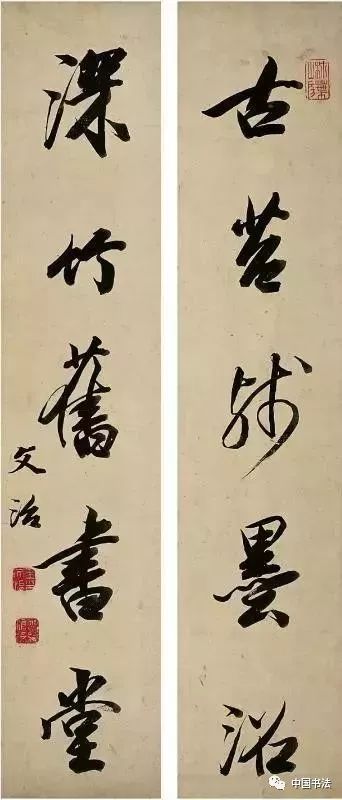 古苔殘墨沼
深竹舊書堂
文治
中国书法